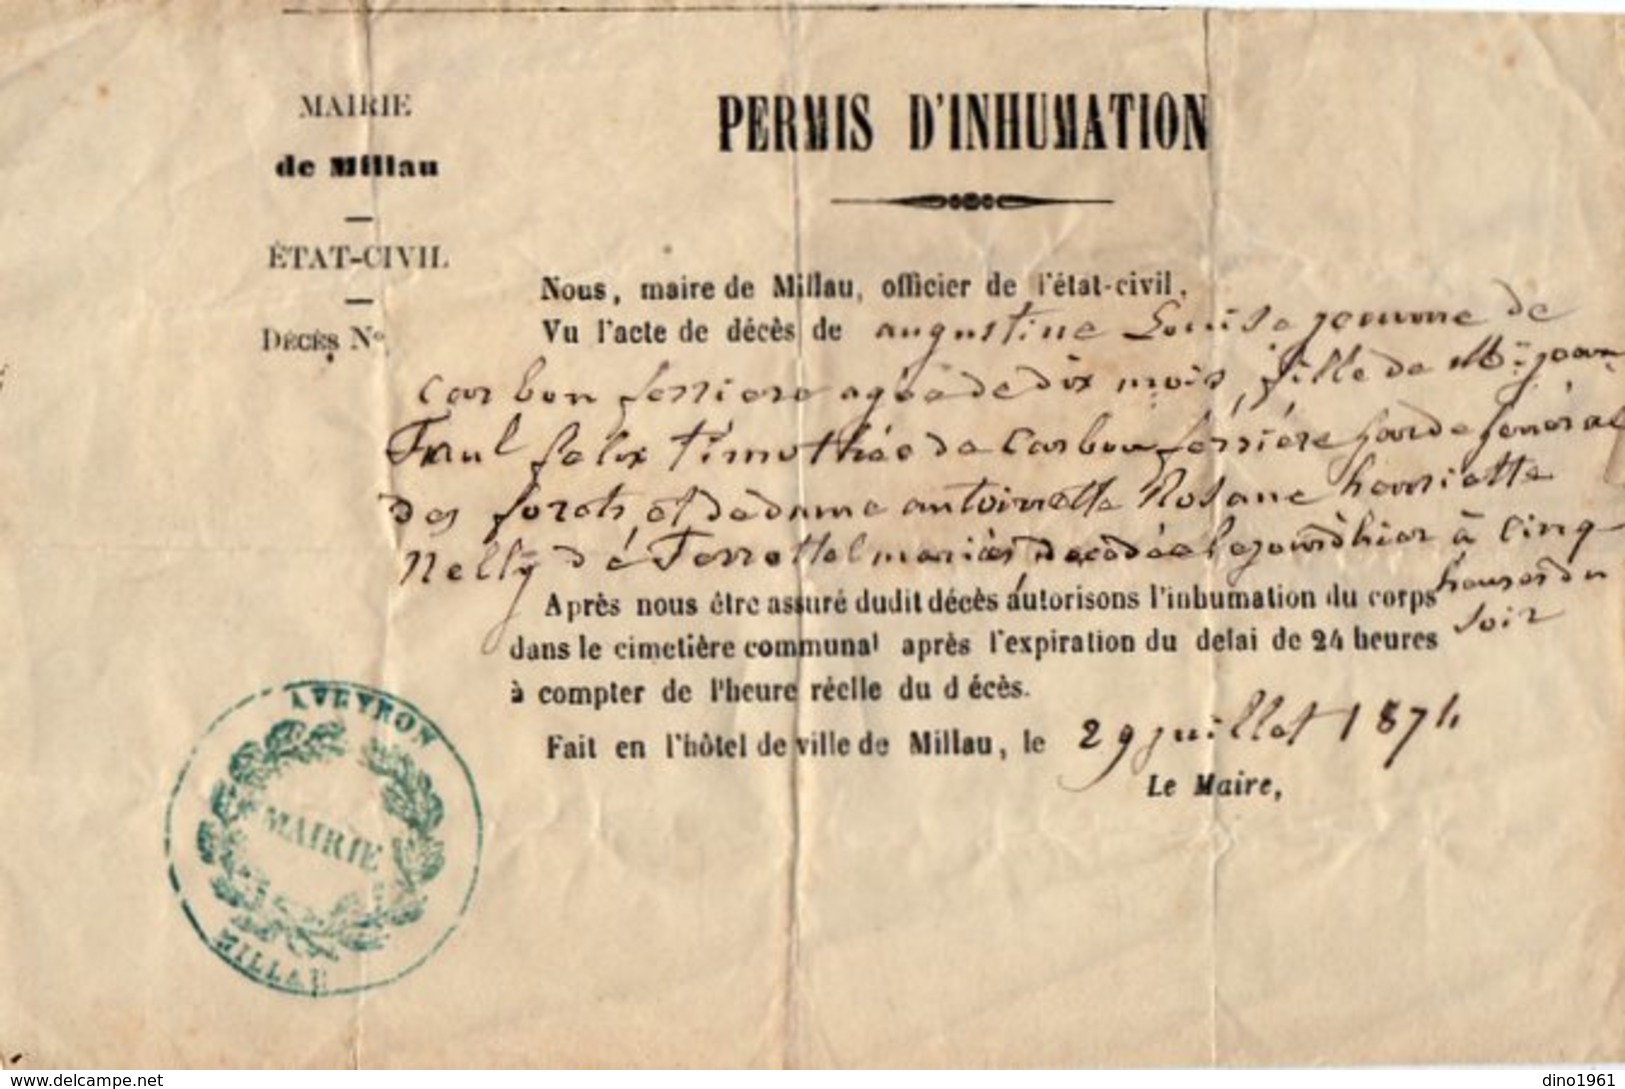 MAIRIE
de Millau
ÉTAT-CIVIL
Décès No
PERMIS D'INHUMATION
Nous, maire de Millau, officier de l'état-civil.
Vu l'acte de décès de augustine Louise jeanne de
Carbon ferriere agée de dix mois, fille de Mr jean
Paul felix timothée de Carbon ferrière garde général
des forets et de dame antoinette Rosane henriette
Nelly mariés décédée à Cinq
heures du
soir
Après nous être assuré dudit décès autorisons l'inhumation du corps
dans le cimetière communal après l'expiration du delai de 24 heures
à compter de l'heure réelle du d écès.
Fait en l'hôtel de ville de Millau, le 29 juillet 1874
Le Maire,
AVEYRON
MAIRIE
MILLAU
www.delcampe.net
dino1961